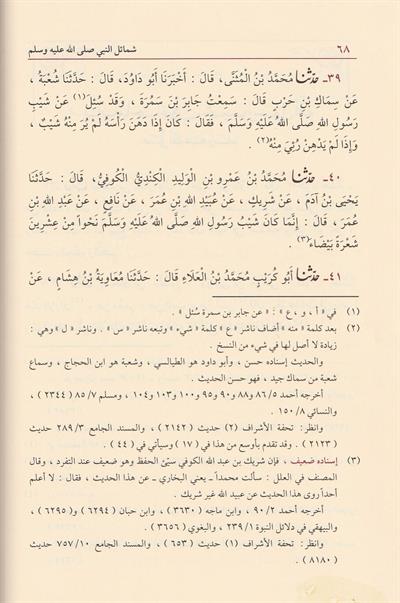 ٦٨ شمائل النبي صلى الله عليه وسلم
٣٩ـ حدّثنا مُحَمَّدُ بْنُ الْمُثَنَّى، قَالَ : أَخْبَرَنَا أَبُو دَاوُدَ، قَالَ : حَدَّثَنَا شُعْبَةُ،
عَنْ سِمَاكِ بْنِ حَرْبٍ قَالَ : سَمِعْتُ جَابِرَ بْنَ سَمُرَةَ ، وَقَدْ سُئِلَ(١) عَنْ شَيْبِ
رَسُولِ اللهِ صَلَّى اللهُ عَلَيْهِ وَسَلَّمَ، فَقَالَ : كَانَ إِذَا دَهَنَ رَأْسَهُ لَمْ يُرَ مِنْهُ شَيْبٌ ،
وَإِذَا لَمْ يَدْهِنْ رُئِيَ مِنْهُ(٢) .
٤٠ـ حدّثنا مُحَمَّدُ بْنُ عَمْرِو بْنِ الْوَلِيدِ الْكِنْدِيُّ الْكُوفِيُّ، قَالَ : حَدَّثَنَا
يَحْيَى بْنُ آدَمَ ، عَنْ شَرِيكٍ ، عَنْ عُبَيْدِ اللهِ بْنِ عُمَرَ ، عَنْ نَافِعٍ ، عَنْ عَبْدِ اللهِ بْنِ
عُمَرَ، قَالَ : إِنَّمَا كَانَ شَيْبُ رَسُولِ اللهِ صَلَّى اللهُ عَلَيْهِ وَسَلَّمَ نَحْواً مِنْ عِشْرِينَ
شَعْرَةً بَيْضَاءَ(٣).
٤١ـ حدّثنا أَبُو كُرَيْبٍ مُحَمَّدُ بْنُ الْعَلَاءِ قَالَ : حَدَّثَنَا مُعَاوِيَةُ بْنُ هِشَامٍ ، عَنْ
(١) في «أ ، و ، ع» : «عن جابر بن سمرة سُئل» .
(٢) بعد كلمة «منه» أضاف ناشر «ع» كلمة «شيء» وتبعه ناشر «س» . وناشر «ل» وهي :
زيادة لا أصل لها في شيء من النسخ .
والحديث إسناده حسن ، وأبو داود هو الطيالسي ، وشعبة هو ابن الحجاج ، وسماع
شعبة من سماك جيد ، فهو حسن الحديث .
أخرجه أحمد ٨٦/٥ و٨٨ و٩٠ و٩٥ و١٠٠ و١٠٣ و١٠٤، ومسلم ٨٥/٧ (٢٣٤٤) ،
والنسائي ١٥٠/٨ .
وانظر: تحفة الأشراف (٢) حديث (٢١٤٢) ، والمسند الجامع ٢٨٩/٣ حديث
(٢١٢٣) . وقد تقدم بأوسع من هذا في (١٧) وسيأتي في (٤٤) .
(٣) إسناده ضعيف ، فإن شريك بن عبد الله الكوفي سيّئ الحفظ وهو ضعيف عند التفرد ، وقال
المصنف في العلل : سألت محمداً ـ يعني البخاري ـ عن هذا الحديث ، فقال : لا أعلم
أحداً روى هذا الحديث عن عبيد الله غير شريك .
أخرجه أحمد ٩٠/٢ ، وابن ماجه (٣٦٣٠) ، وابن حبان (٦٢٩٤) و(٦٢٩٥) ،
والبيهقي في دلائل النبوة ٢٣٩/١ ، والبغوي (٣٦٥٦) .
وانظر: تحفة الأشراف (١) حديث (٦٥٣) ، والمسند الجامع ٧٥٧/١٠ حديث
(٨١٨٠) .